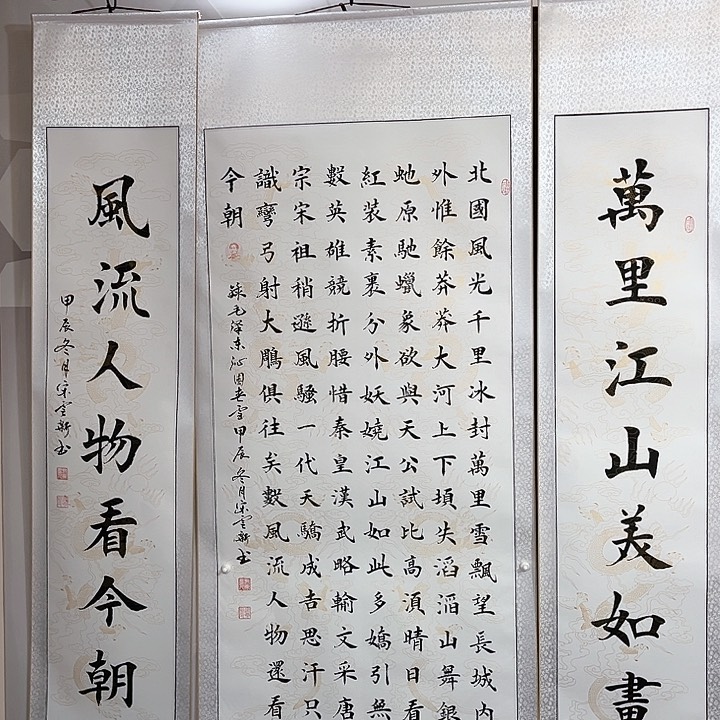 萬里江山美如畫
北國風光千里冰封萬里雪飄望長城内
外惟餘莽莽大河上下頃失滔滔山舞銀
虵原馳蠟象欲與天公試比高須晴日看
紅装素裹分外妖嬈江山如此多嬌引無
數英雄競折腰惜秦皇漢武略輸文采唐
宗宋祖稍遜風騷一代天驕成吉思汗只
識彎弓射大鵰俱往矣數風流人物還看
今朝
録毛澤東沁園春雪甲辰冬月宋雲新书
風流人物看今朝
甲辰冬月宋雲新书